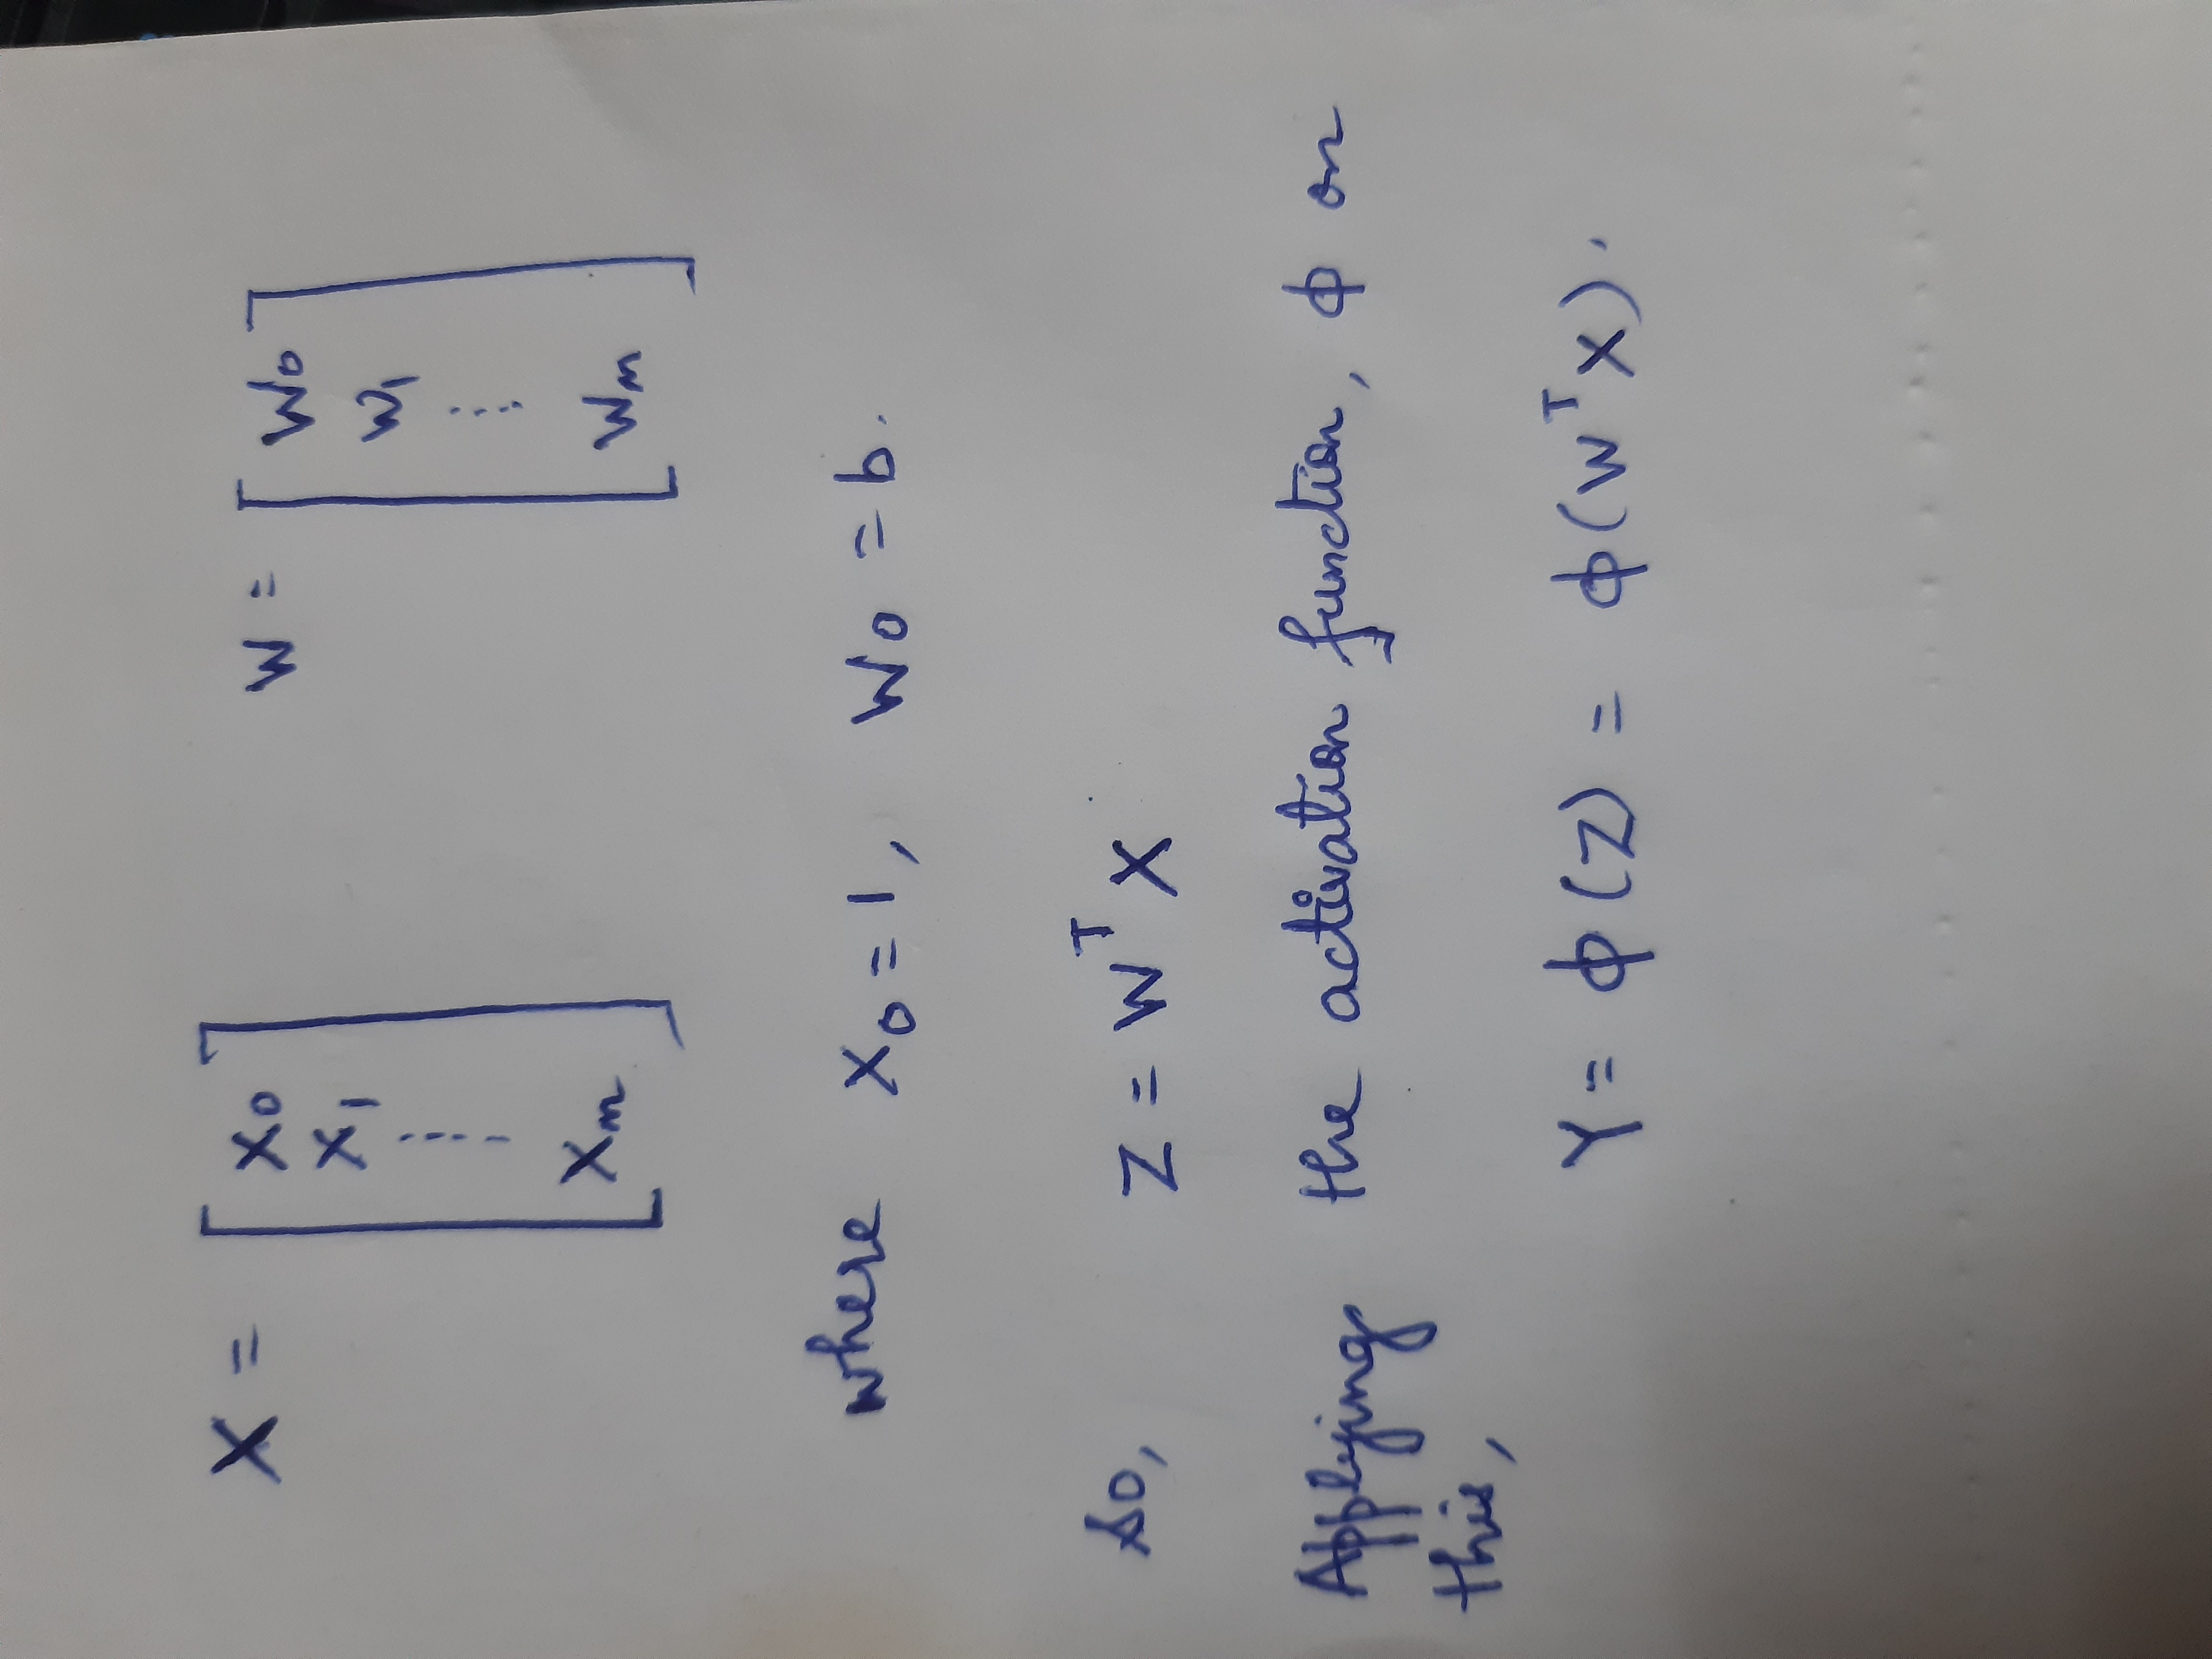 X = [ x0 W = [ W0
x1 w1
⋮ ⋮
xm ] Wm ]
where x0 = 1, W0 = b.
So, Z = W^T X
Applying the activation function, ϕ on
this,
Y = ϕ(Z) = ϕ(W^T X).